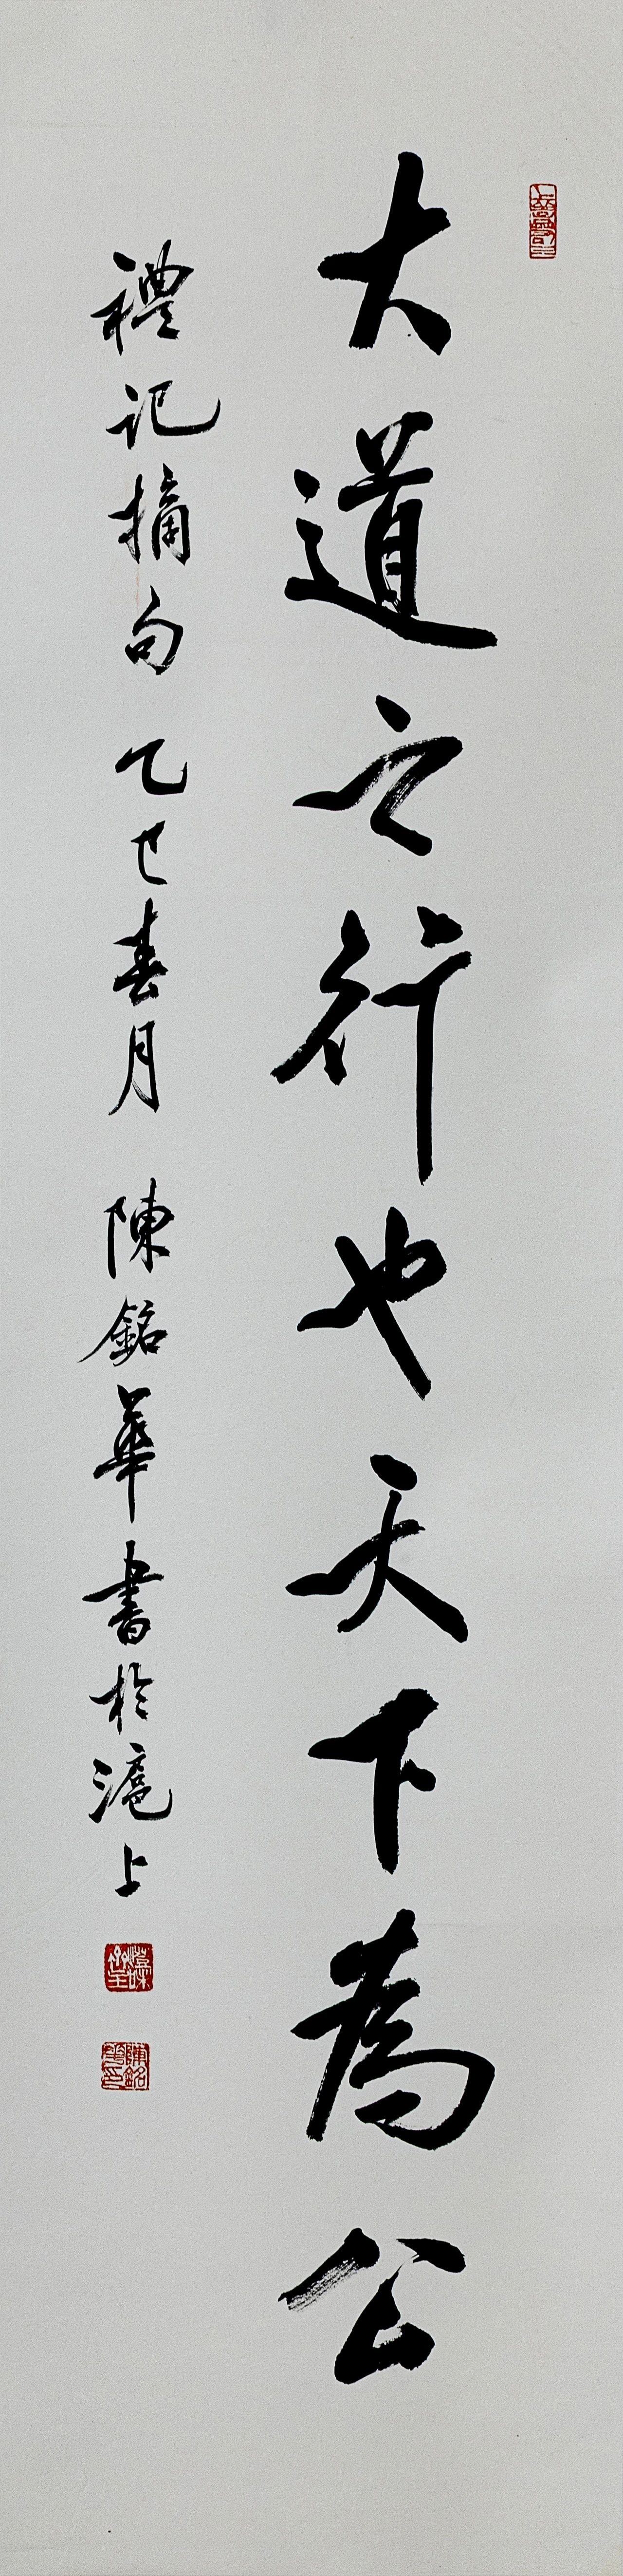 大道之行也天下為公
禮記摘句 乙巳春月 陳銘華書於滬上